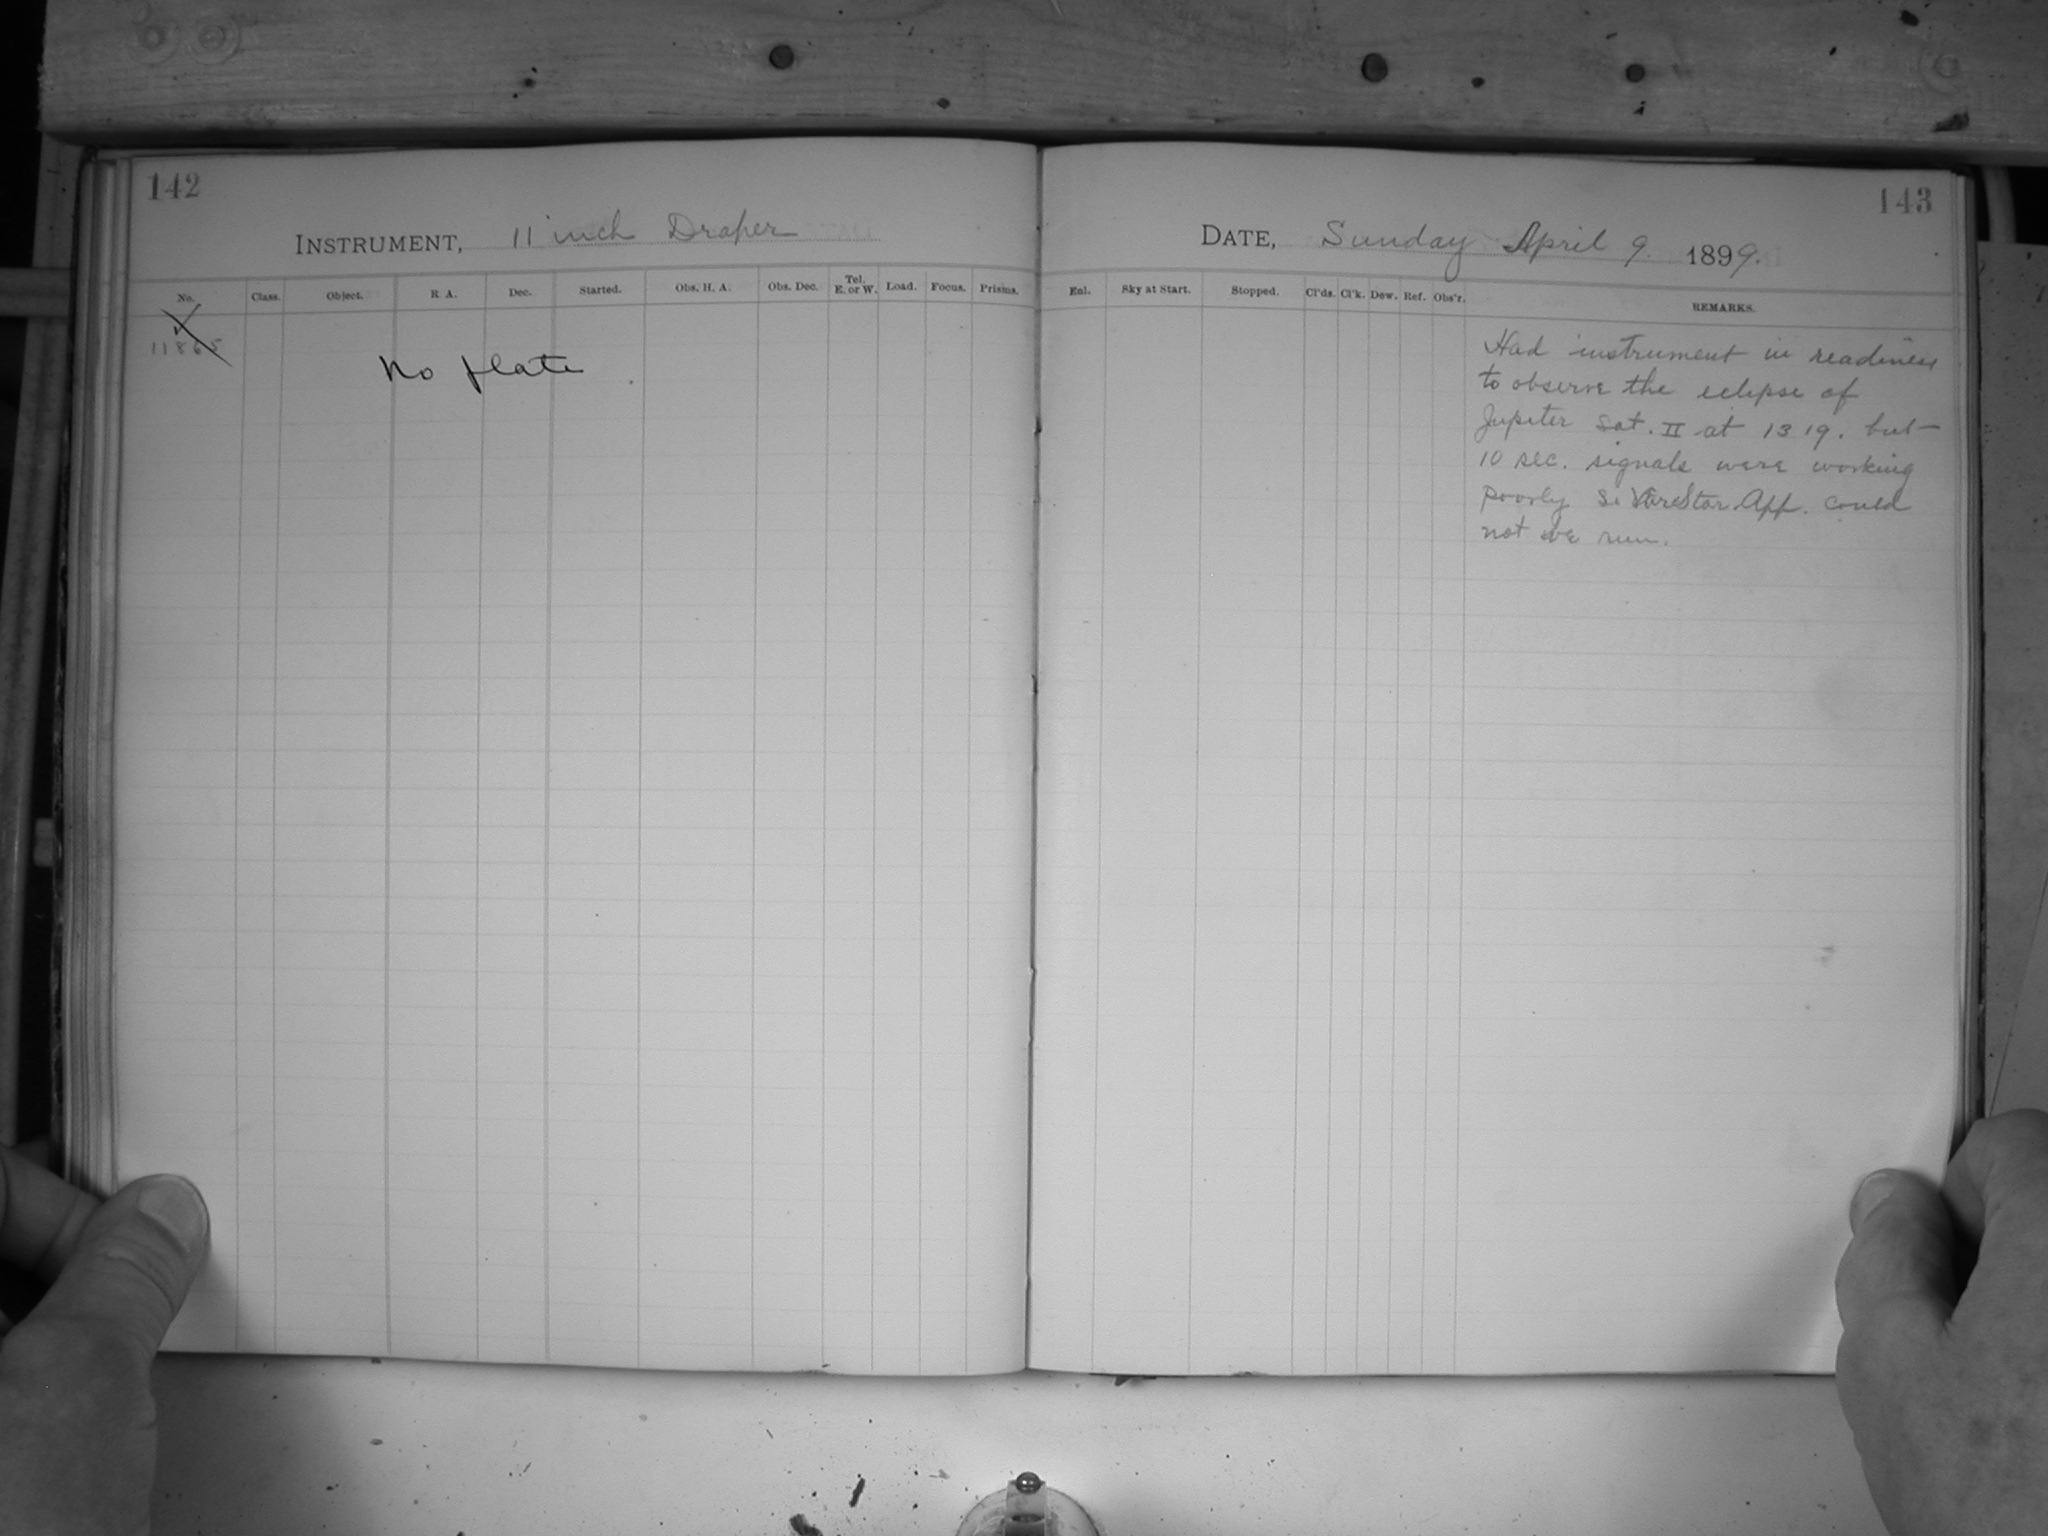 142
INSTRUMENT, 11 inch Draper
No. Class. Object. R A. Dec. Started. Obs. H. A. Obs. Dec. Tel. E. or W. Load. Focus. Prisms.
11865
No plate
143
DATE, Sunday April 9. 1899.
Enl. Sky at Start. Stopped. Cl'ds. Cl'k. Dew. Ref. Obs'r. REMARKS.
Had instrument in readiness
to observe the eclipse of
Jupiter Sat. II at 13 19. but
10 sec. signals were working
poorly Star App. could
not be run.